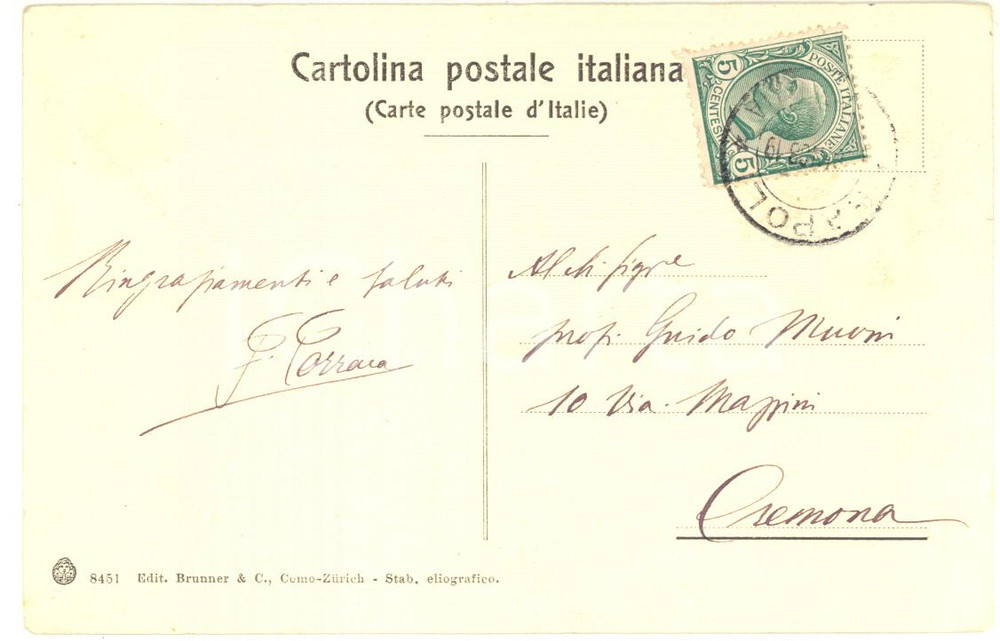 Cartolina postale italiana
(Carte postale d'Italie)
POSTE ITALIANE
5 CENTESIMI 5
Ringraziamenti e saluti
F. Corrara
prof. Guido Muoni
10 Via Mazzini
Cremona
8451 Edit. Brunner & C., Como-Zürich - Stab. eliografico.